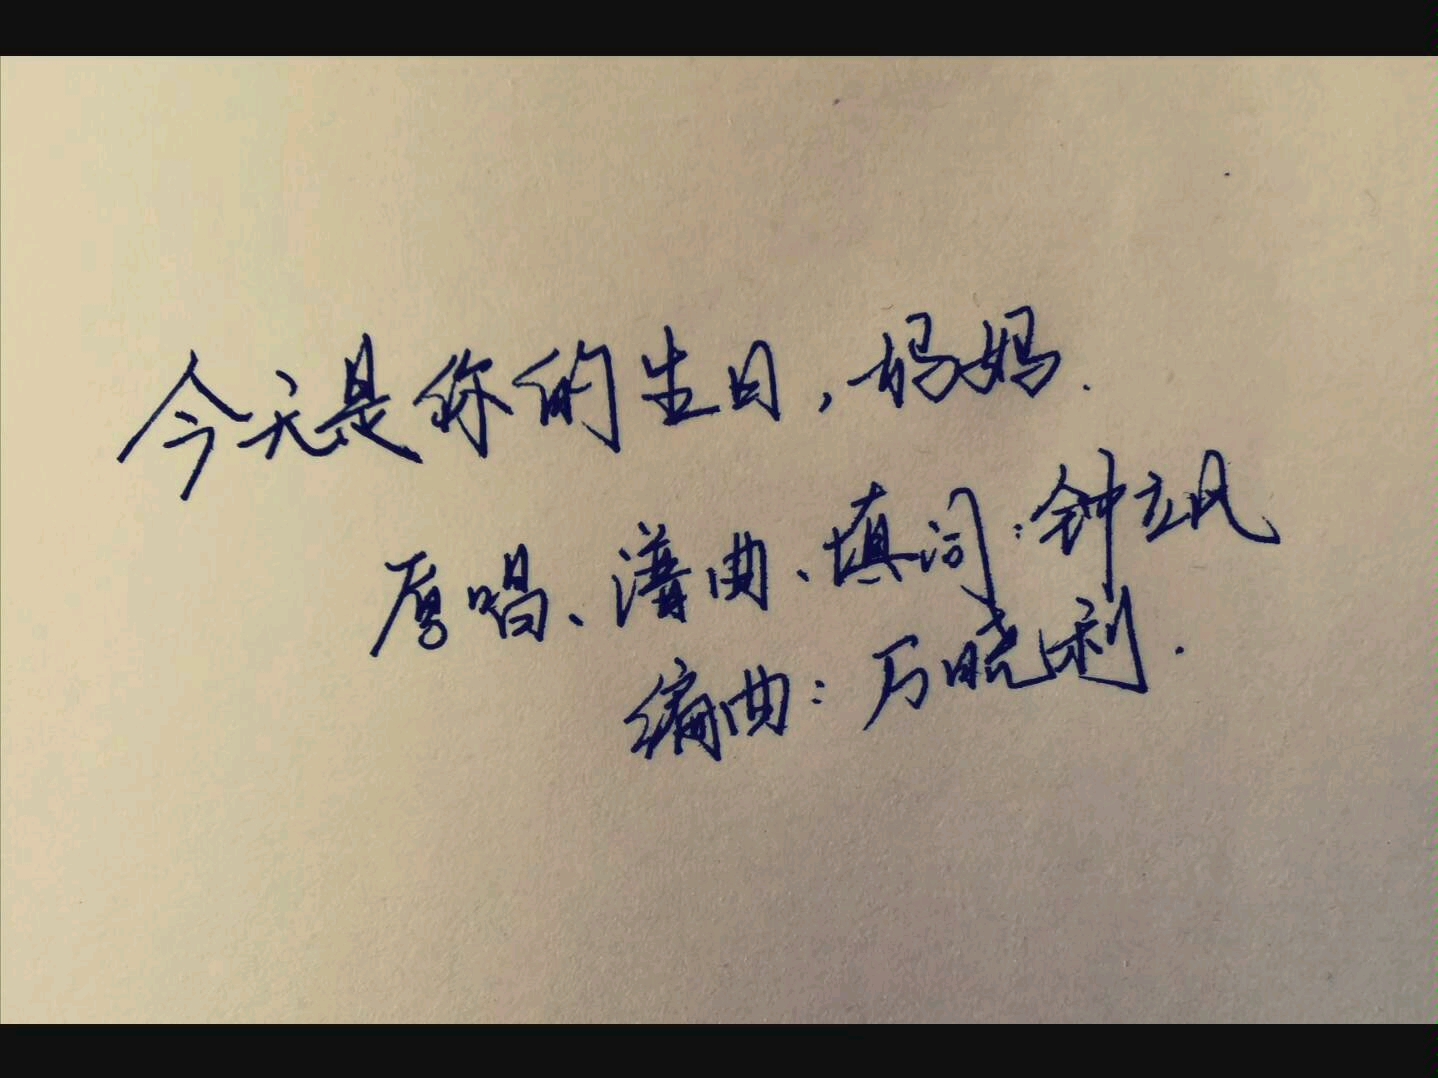 今天是你的生日,妈妈.
原唱、谱曲、填词:钟立风
编曲:万晓利.